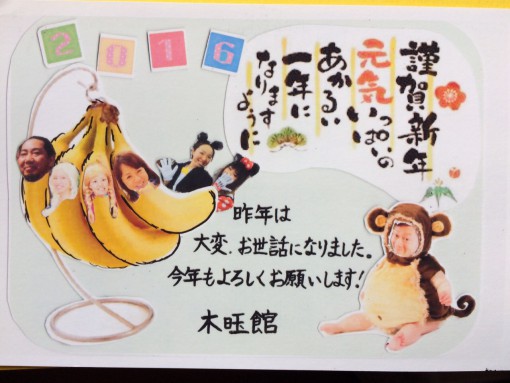 2016
謹賀新年
元気いっぱいの
あかるい
一年に
なります
ように
昨年は
大変、お世話になりました。
今年もよろしくお願いします!
木旺館